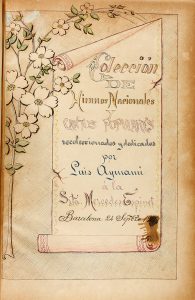 Colección
DE
Himnos Nacionales
CANTOS POPULARES
recoleccionados y dedicados
por
Luis Aymami
à la
Srta. Mercedes Espinet
Barcelona 24 Septbre